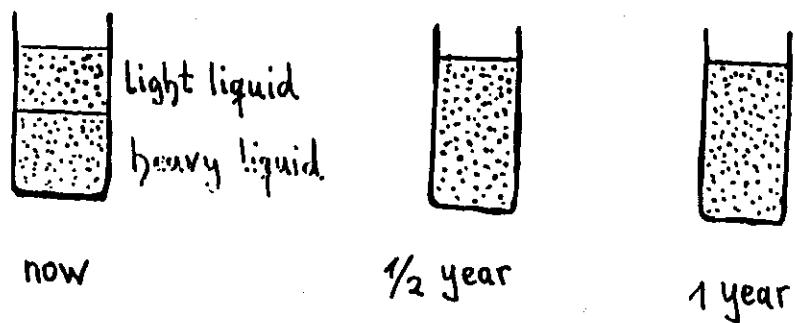 light liquid
heavy liquid
now
1/2 year
1 year